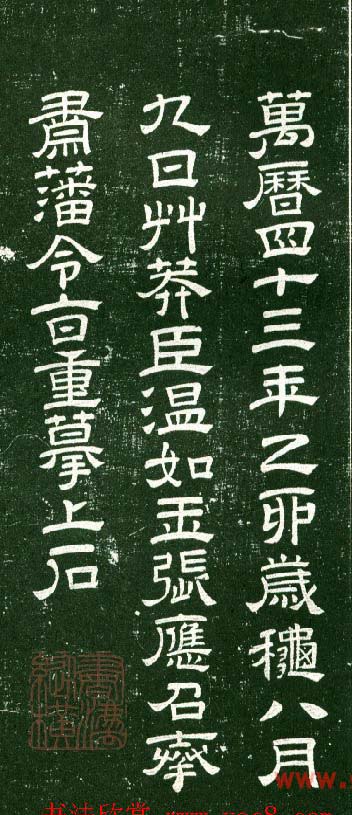 萬曆四十三年乙卯歲穐八月
九日艸莽臣温如玉張應召奉
肅藩令㫖重摹上石
www.
书法欣赏 www.yac8.com